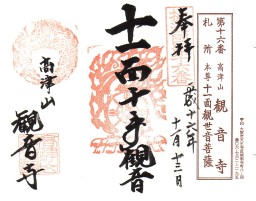 第十六番 高津山 觀音寺
札所 本尊 十一面観世音菩薩
奉拝
平成十六年
十一月十三日
十一面千手觀音
高津山
観音寺